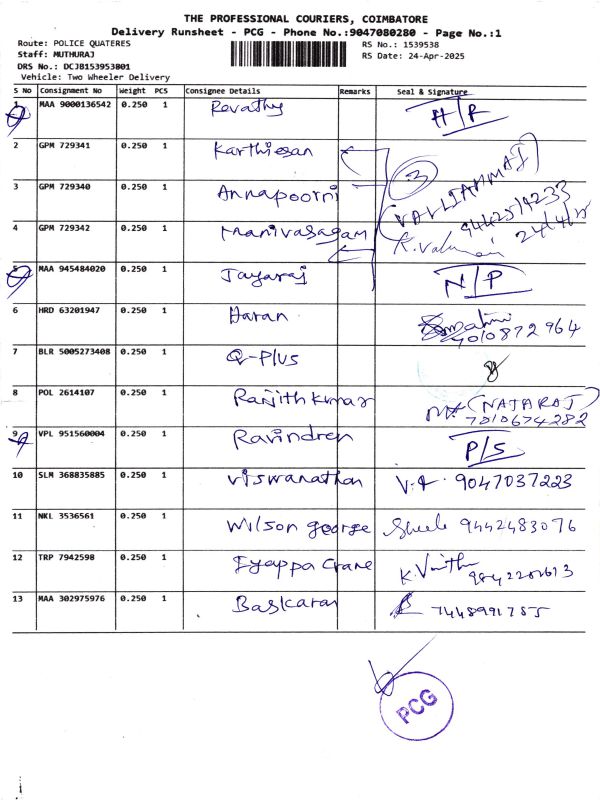 THE PROFESSIONAL COURIERS, COIMBATORE
Delivery Runsheet - PCG - Phone No.:9047080280 - Page No.:1
Route: POLICE QUATERES
RS No.: 1539538
Staff: MUTHURAJ
RS Date: 24-Apr-2025
DRS No.: DCJB153953801
Vehicle: Two Wheeler Delivery
S No Consignment No Weight PCS Consignee Details Remarks Seal & Signature
1 MAA 9000136542 0.250 1 Revathy H/R
2 GPM 729341 0.250 1 Karthiesan
3 GPM 729340 0.250 1 Annapoorni 3 (VALLIAMMAI) 9442519233
4 GPM 729342 0.250 1 Manivasagam 24/4/25
5 MAA 945484020 0.250 1 Jayaraj N/P
6 HRD 63201947 0.250 1 Haran 7010872964
7 BLR 5005273408 0.250 1 Q-Plus
8 POL 2614107 0.250 1 Ranjith Kumar (NATARAJ) 7010674282
9 VPL 951560004 0.250 1 Ravindren P/S
10 SLM 368835885 0.250 1 Viswanathan 9047037223
11 NKL 3536561 0.250 1 Wilson george Sheela 9442483076
12 TRP 7942598 0.250 1 Iyappa Crane
13 MAA 302975976 0.250 1 Baskaran 7448991785
PCG